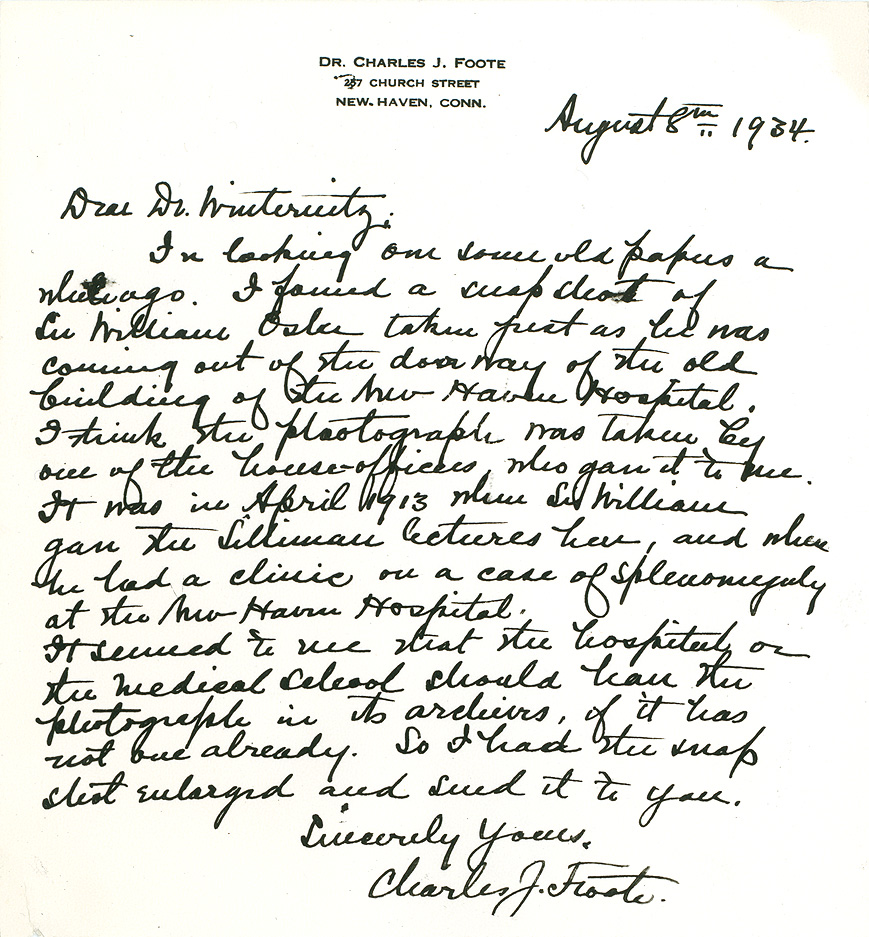 DR. CHARLES J. FOOTE
257 CHURCH STREET
NEW HAVEN, CONN.
August 8th 1934.
Dear Dr. Winternitz,
In looking over some old papers a
while ago. I found a snap shot of
Sir William Osler taken just as he was
coming out of the door way of the old
building of the New Haven Hospital.
I think the photograph was taken by
one of the house-officers, who gave it to me.
It was in April 1913 when Sir William
gave the Silliman lectures here, and when
he had a clinic on a case of splenomegaly
at the New Haven Hospital.
It seemed to me that the hospital, or
the medical school should have the
photograph in its archives, if it has
not one already. So I had the snap
shot enlarged and send it to you.
Sincerely Yours.
Charles J. Foote.